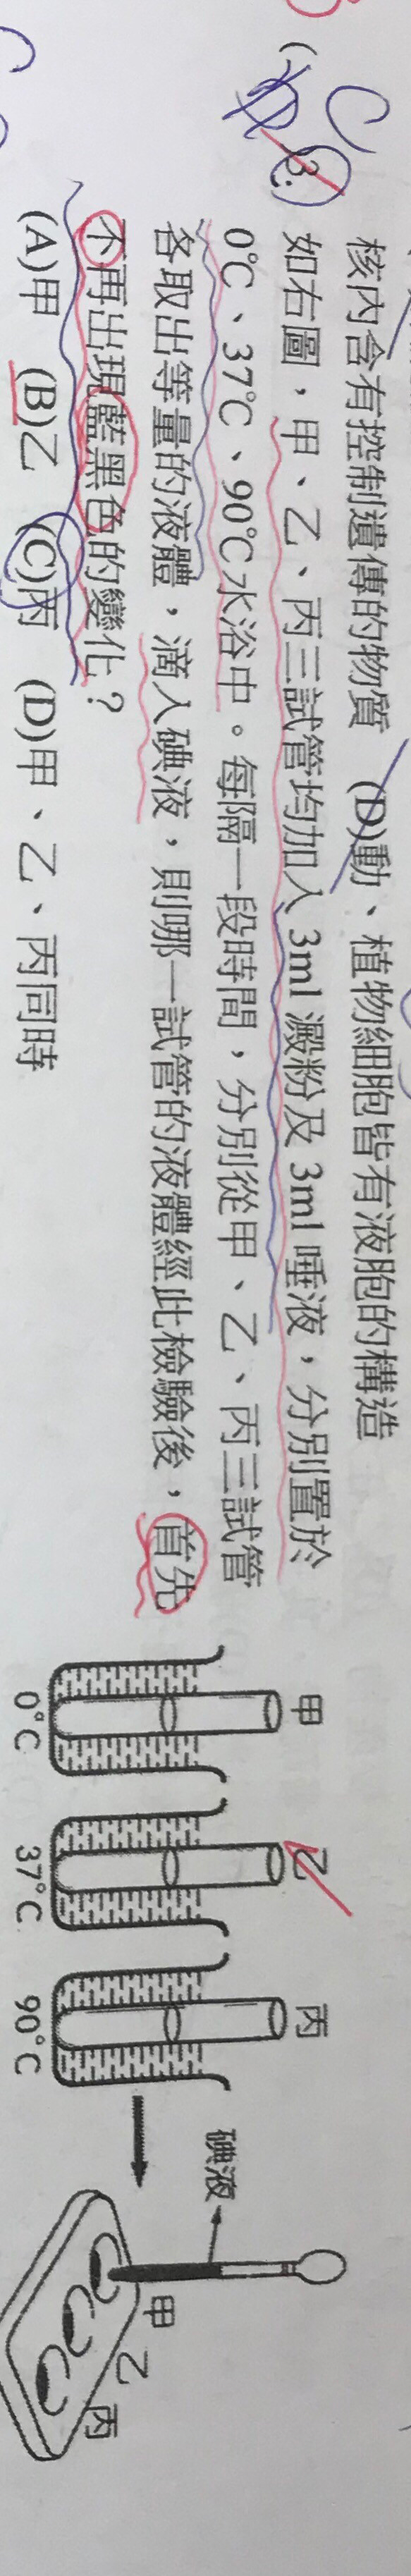 核內含有控制遺傳的物質 (D)動、植物細胞皆有液胞的構造
C
( 3. 如右圖，甲、乙、丙三試管均加入 3ml 澱粉及 3ml 唾液，分別置於
0℃、37℃、90℃水浴中。每隔一段時間，分別從甲、乙、丙三試管
各取出等量的液體，滴入碘液，則哪一試管的液體經此檢驗後，首先
不再出現藍黑色的變化？
(A)甲 (B)乙 (C)丙 (D)甲、乙、丙同時
甲 乙 丙
0℃ 37℃ 90℃
碘液
甲 乙 丙